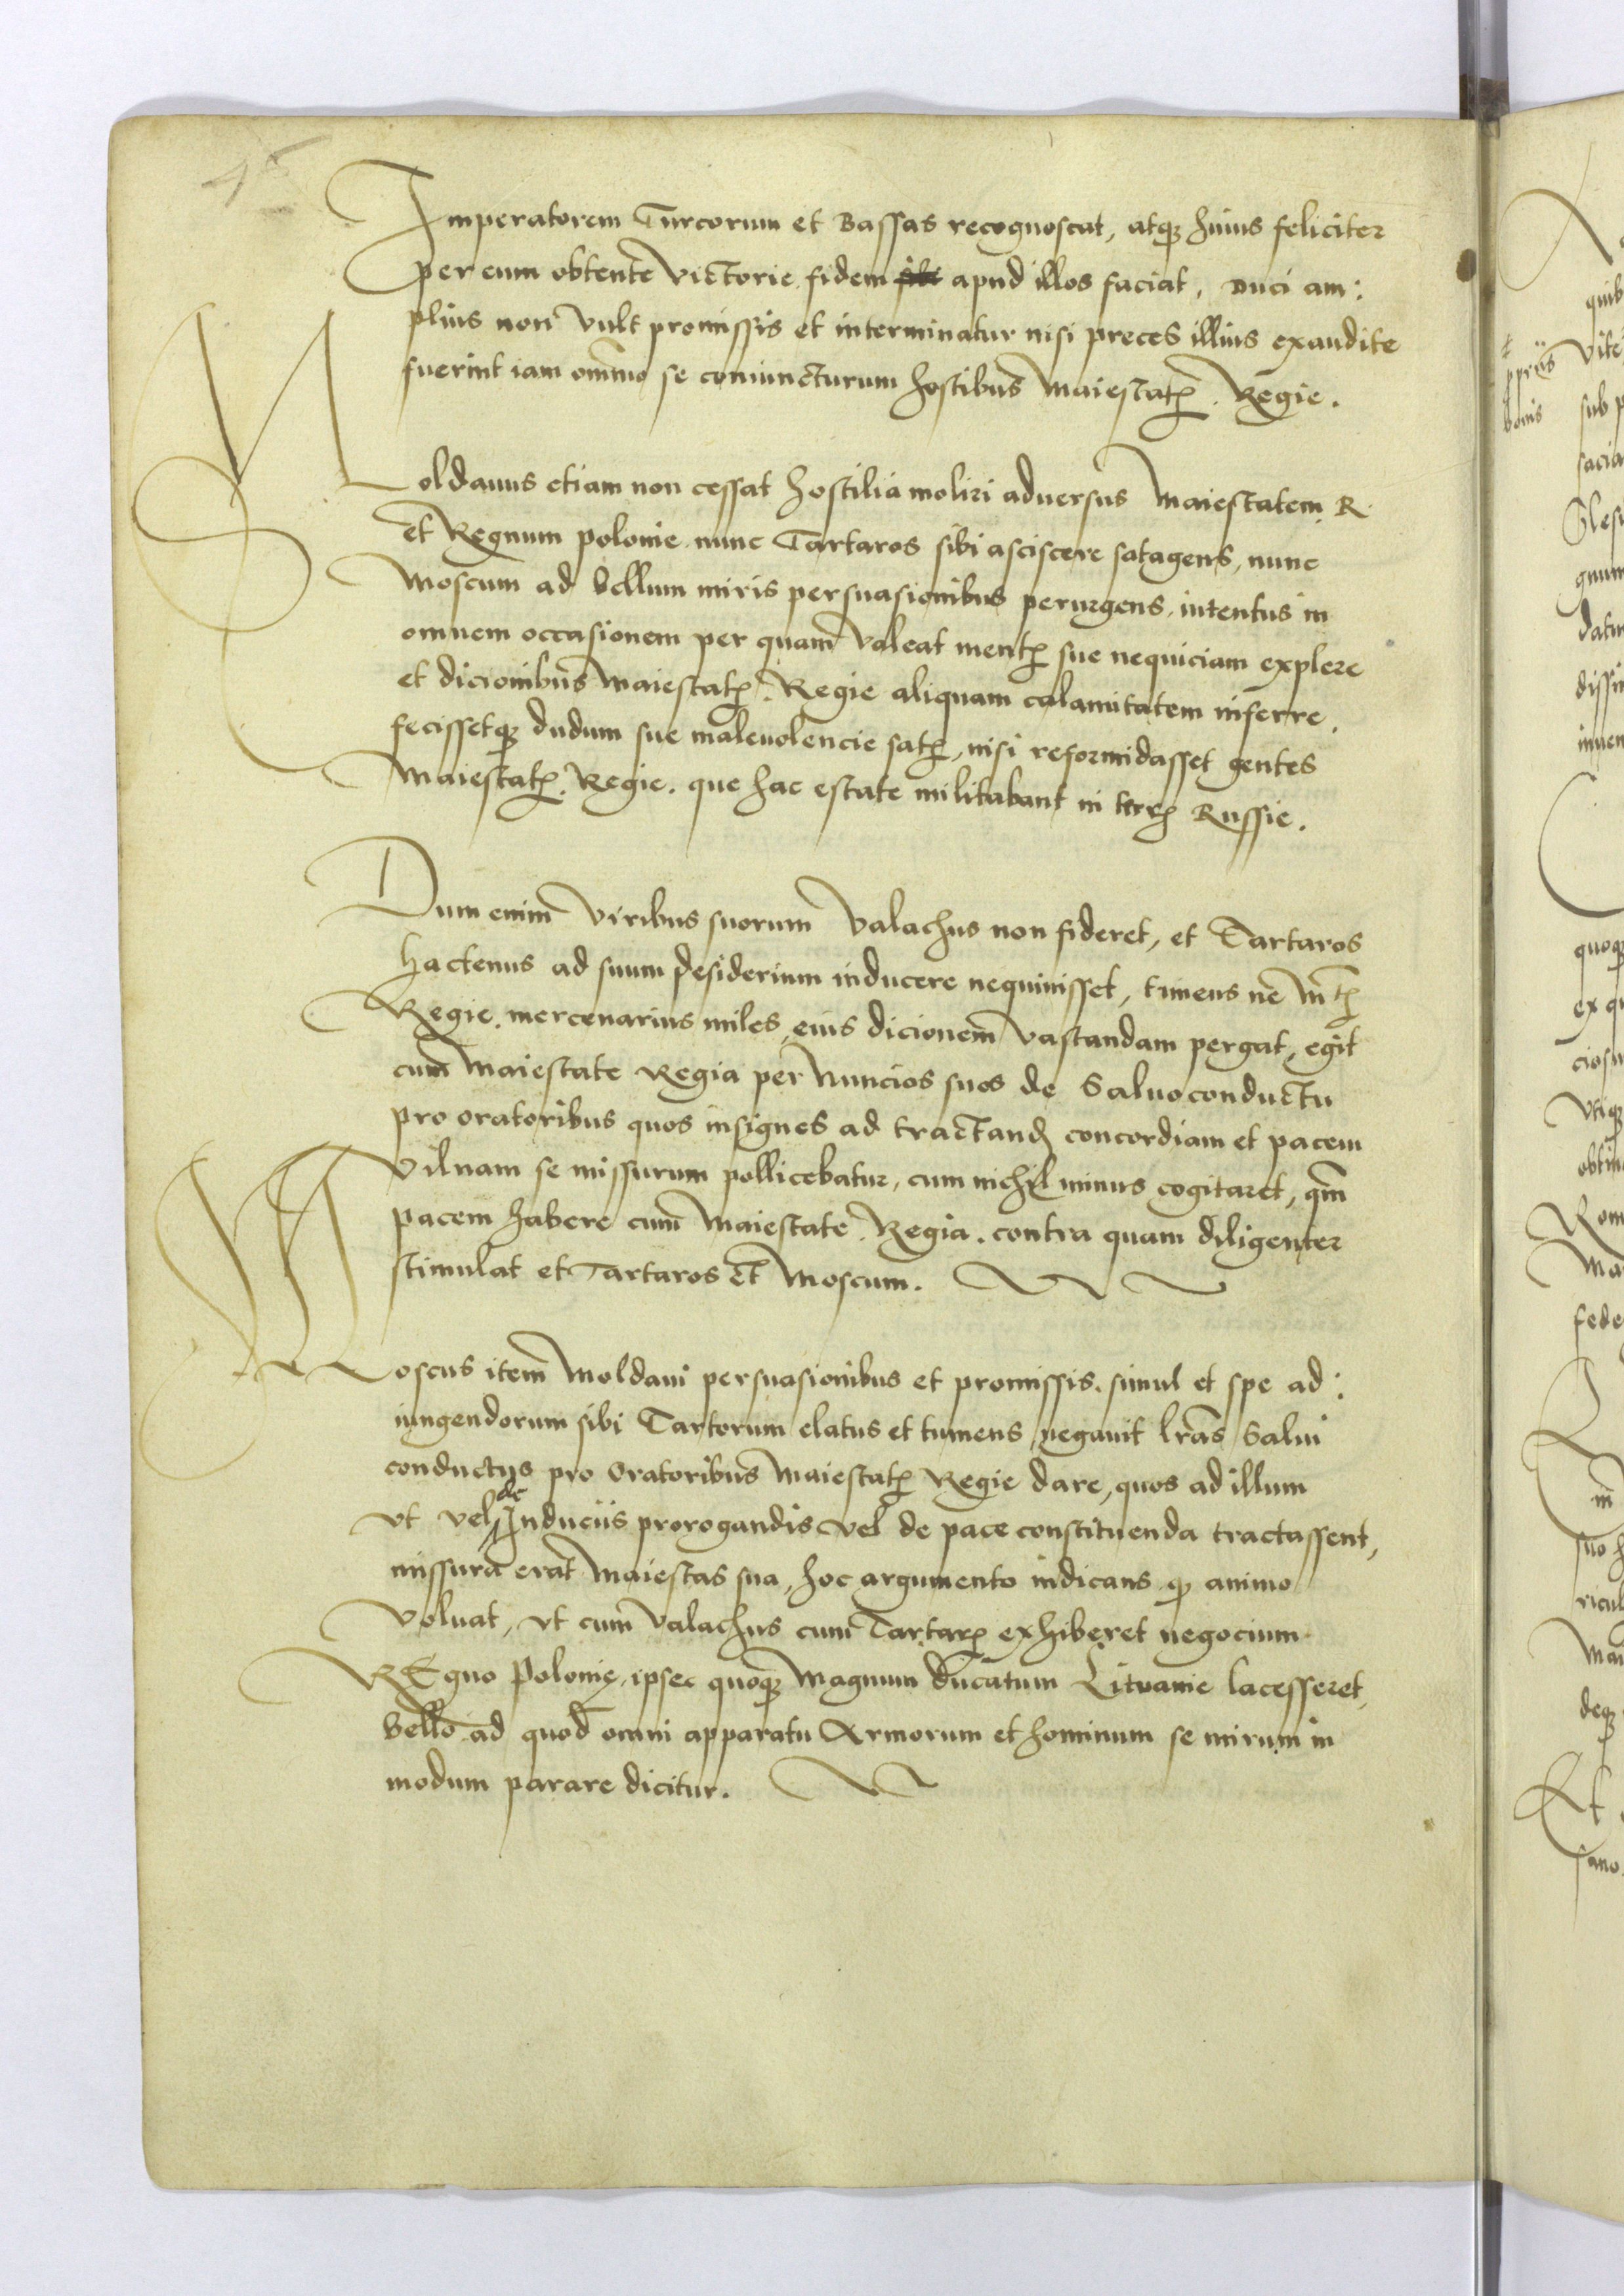 Imperatorem Turcorum et Bassas recognoscat, atqꝫ huius feliciter
per eum obtente victorie fidem sibi apud illos faciat, Duci am:
plius non vult promissis et interminatur nisi preces illius exaudite
fuerint iam om̄ino se coniuncturum hostibus Maiestatꝭ. Regie.
Moldauus etiam non cessat hostilia moliri aduersus Maiestatem R
et Regnum polonie nunc Tartaros sibi asciscere satagens, nunc
Moscum ad bellum miris persuasionibus perurgens, intentus in
omnem occasionem per quam valeat mentꝭ sue nequiciam explere
et dicionibus Maiestatꝭ. Regie aliquam calamitatem inferre,
fecissetqꝫ dudum sue maleuolencie satꝭ, nisi reformidasset gentes
Maiestatꝭ. Regie. que hac estate militabant in terrꝭ Russie.
Dum enim viribus suorum Valachus non fideret, et Tartaros
hactenus ad suum desiderium inducere nequiuisset, timens ne Mtꝭ
Regie. mercenarius miles, eius dicionem vastandam pergat, egit
cum Maiestate Regia per Nuncios suos de Saluoconductu
pro oratoribus quos insignes ad tractand concordiam et pacem
Vilnam se missurum pollicebatur, cum nichil minus cogitaret, qm̄
pacem habere cum Maiestate. Regia. contra quam diligenter
stimulat et Tartaros et Moscum.
Moscus item Moldaui persuasionibus et promissis. simul et spe ad:
iungendorum sibi Tartorum elatus et tumens, negauit lr̄as Salui
conductus pro Oratoribus Maiestatꝭ Regie dare, quos ad illum
vt vel de Induciis prorogandis vel de pace constituenda tractassent,
missura erat Maiestas sua, hoc argumento indicans qꝫ animo
voluat, vt cum Valachus cum Tartarꝭ exhiberet negocium
REgno Polonie, ipse quoqꝫ Magnum ducatum Lituanie lacesseret
bello ad quod omni apparatu Armorum et hominum se mirum in
modum parare dicitur.